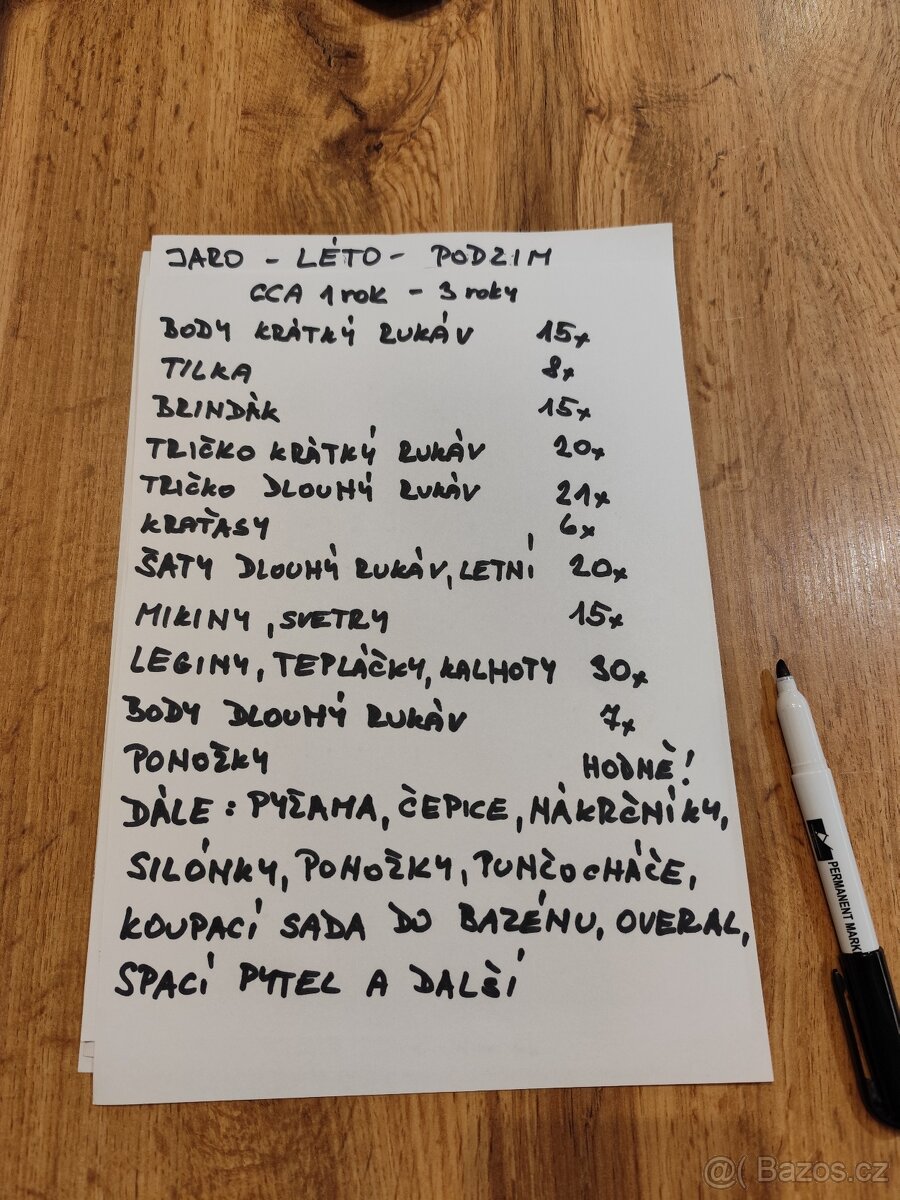 JARO - LÉTO - PODZIM
CCA 1 rok - 3 roky
BODY KRÁTKÝ RUKÁV 15x
TILKA 8x
BRINDÁK 15x
TRIČKO KRÁTKÝ RUKÁV 20x
TRIČKO DLOUHÝ RUKÁV 21x
KRAŤASY 6x
ŠATY DLOUHÝ RUKÁV, LETNÍ 20x
MIKINY, SVETRY 15x
LEGINY, TEPLÁČKY, KALHOTY 30x
BODY DLOUHÝ RUKÁV 7x
PONOŽKY HODNĚ!
DÁLE: PYŽAMA, ČEPICE, NÁKRČNÍKY,
SILÓNKY, PONOŽKY, PUNČOCHÁČE,
KOUPACÍ SADA DO BAZÉNU, OVERAL,
SPACÍ PYTEL A DALŠÍ
PERMANENT MARK
@( Bazos.cz